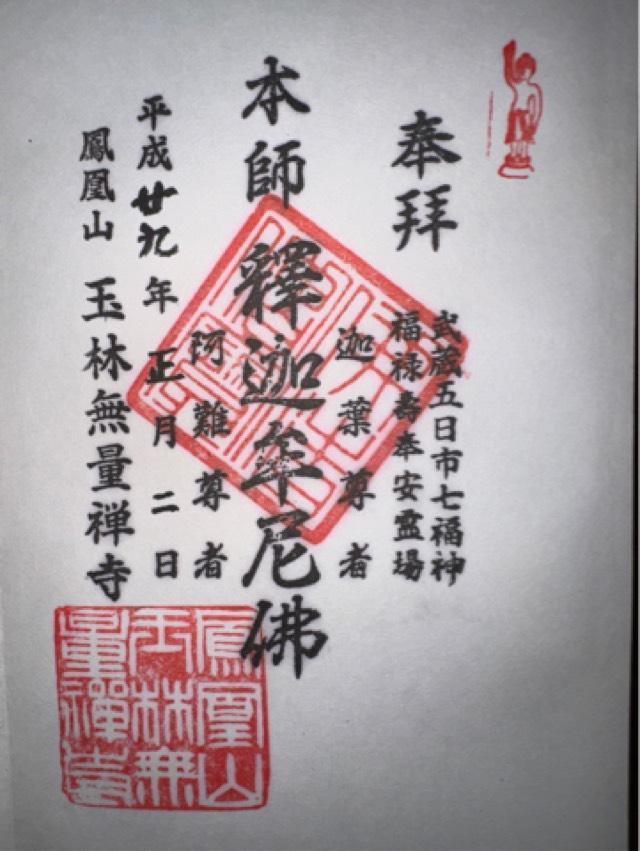 奉拝
武蔵五日市七福神
福禄壽奉安霊場
迦葉尊者
本師釋迦牟尼佛
阿難尊者
平成廿九年正月二日
鳳凰山玉林無量禅寺
鳳凰山
玉林無
量禪寺